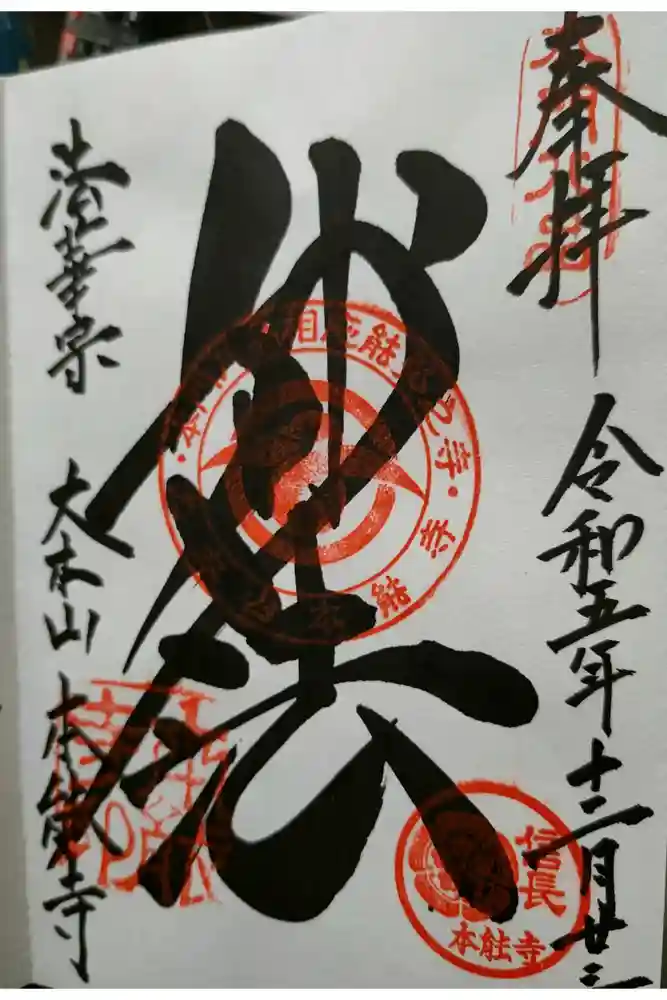 奉拝
令和五年十二月廿三
妙法
法華宗 大本山 本能寺
信長
本能寺